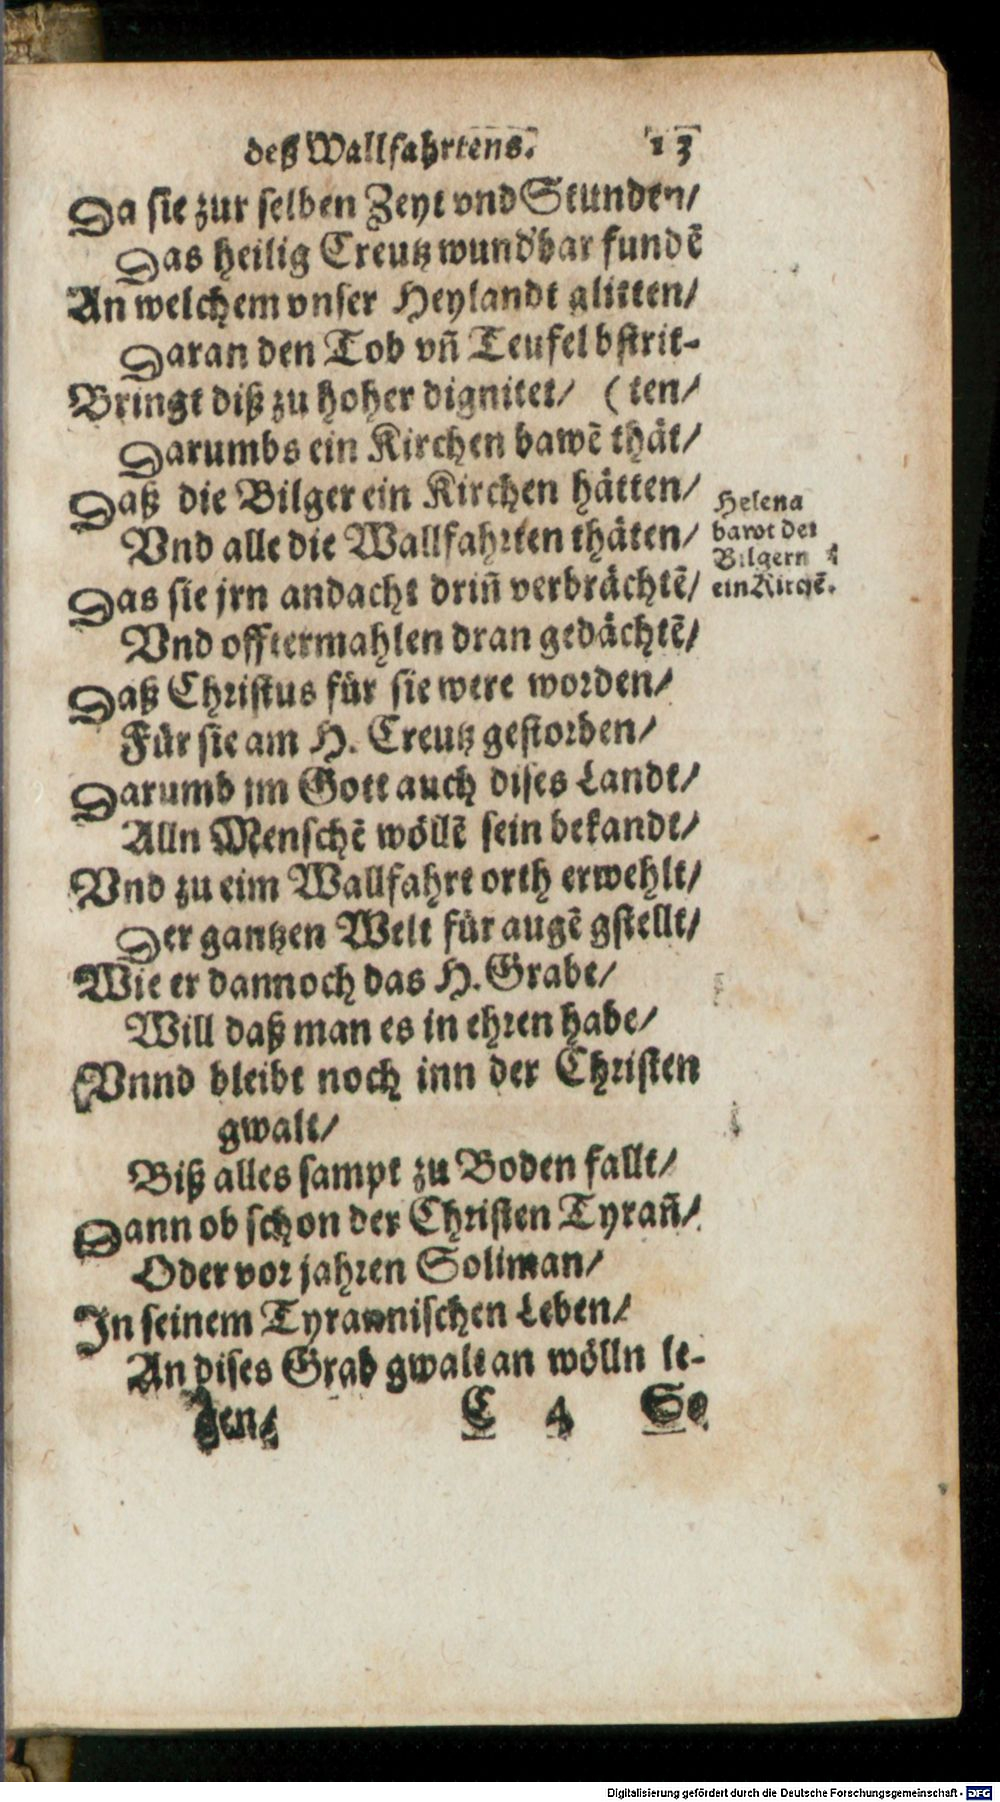 deß Wallfahrtens. 13
Da sie zur selben Zeyt vnd Stunden/
Das heilig Creutz wund'bar fundē
An welchem vnser Heylandt glitten/
Daran den Tod vñ Teufel bstrit-
Bringt diß zu hoher dignitet/ (ten/
Darumbs ein Kirchen bawē thät/
Daß die Bilger ein Kirchen hätten/
Vnd alle die Wallfahrten thäten/
Das sie jrn andacht driñ verbrächtē/
Vnd offtermahlen dran gedächtē/
Daß Christus für sie were worden/
Für sie am H. Creutz gestorben/
Darumb jm Gott auch dises Landt/
Alln Menschē wöllē sein bekandt/
Vnd zu eim Wallfahrt orth erwehlt/
Der gantzen Welt für augē gstellt/
Wie er dannoch das H. Grabe/
Will daß man es in ehren habe/
Vnnd bleibt noch inn der Christen
gwalt/
Biß alles sampt zu Boden fallt/
Dann ob schon der Christen Tyrañ/
Oder vor jahren Soliman/
In seinem Tyrannischen Leben/
An dises Grab gwalt an wölln le-
gen/ C 4 So
Helena
bawt der
Bilgern
ein Kirchē.
Digitalisierung gefördert durch die Deutsche Forschungsgemeinschaft - DFG